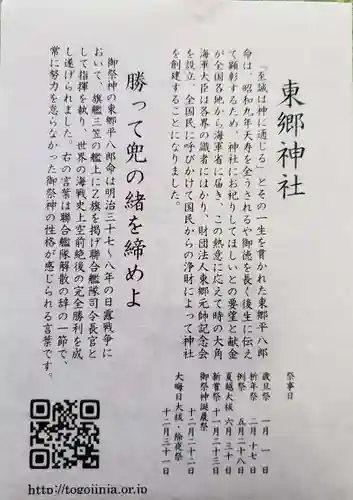 東郷神社
『至誠は神に通じる』とその一生を貫かれた東郷平八郎
命は、昭和九年天寿を全うされるや御徳を長く後生に伝え
て顕彰するため、神社にお祀りしてほしいとの要望と献金
が全国各地から海軍省に届き、この熱意に応えて時の大角
海軍大臣は各界の識者にはかり、財団法人東郷元帥記念会
を設立、全国民に呼びかけて国民からの浄財によって神社
を創建することになりました。
勝って兜の緒を締めよ
御祭神の東郷平八郎命は明治三十七〜八年の日露戦争に
おいて、旗艦三笠の艦上にZ旗を掲げ聯合艦隊司令長官と
して指揮を執り、世界の海戦史上空前絶後の完全勝利を成
し遂げられました。右の言葉は聯合艦隊解散の辞の一節で、
常に努力を怠らなかった御祭神の性格が感じられる言葉です。
祭事日
歳旦祭 一月一日
祈年祭 二月十七日
例祭 五月二十八日
夏越大祓 六月三十日
新嘗祭 十一月二十三日
御祭神誕晨祭
十二月二十二日
大晦日大祓・除夜祭
十二月三十一日
http://togojinja.or.jp